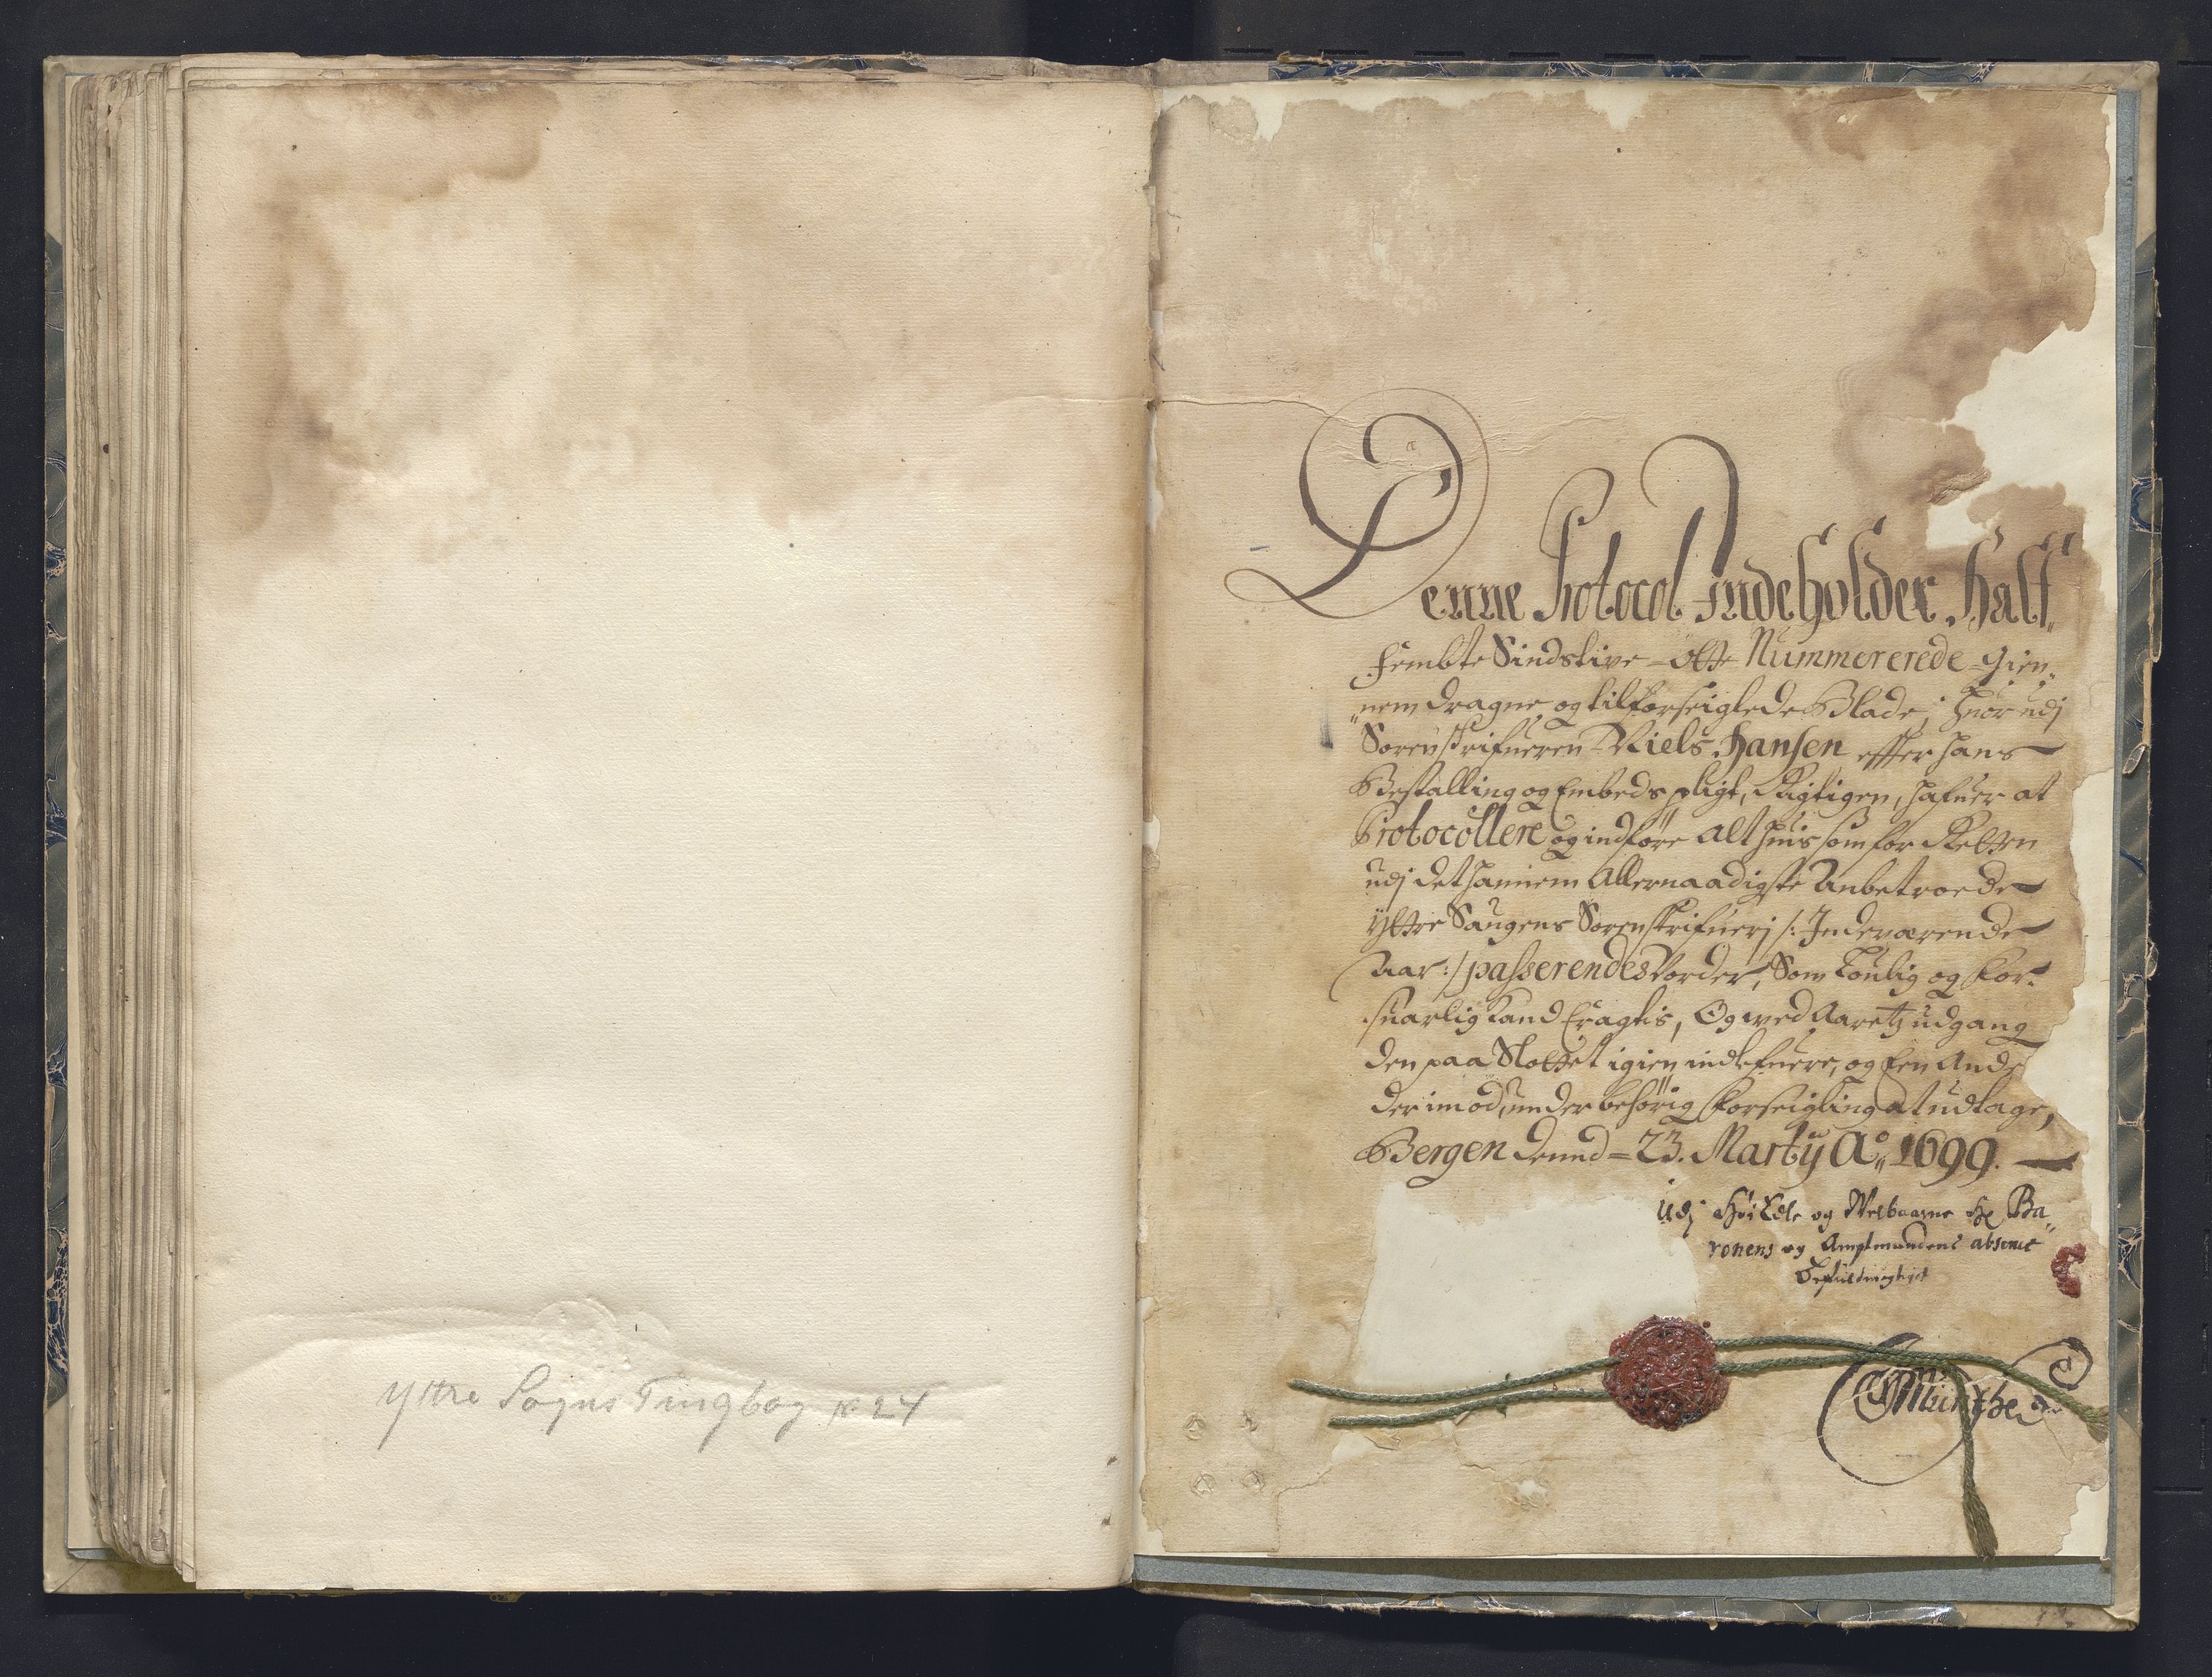 Yttre Sogns Tingbog No 24
Denne Protocol Indeholder, Half„
fembte Sindstive - Otte Nummererede - Gien„
„nem dragne og tilforseiglede Blade, huor udj
Sorenskrifueren Niels Hansen effter hans
Bestalling og Embeds pligt, Rigtigen, hafuer at
Protocollere og indføre alt huis som for Retten
udj det hannem Allernaadigste Anbetroede
Yttre Saugens Sorenskrifuerj /: Indeværende
Aar :/ passerendes Vorder, Som Loulig og For„
„suarlig kand Eragtis, Og wed Aaretz udgang
den paa Slottet igien indlefuere, og Een Ande
der imod, under behörig Forseigling at udtage,
Bergen dend = 23. Martij Ao„ 1699.
Udj HöiEdle og Welbaarne Hr Ba„
ronens og Amptmandens absence
Münthe